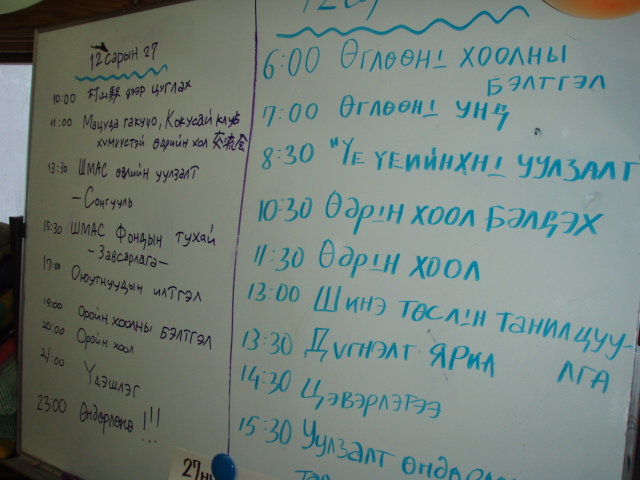 12 сарын 27
10:00 村山駅 дээр цуглах
11:00 Мацуда гакучо, Кокусай клуб
хүмүүстэй өдрийн хол 交流会
13:30 ШМАС өвлийн уулзалт
- Сонгууль
15:30 ШМАС Фондын тухай
- Завсарлага -
17:00 Оюутнуудын илтгэл
19:00 Оройн хоолны бэлтгэл
20:00 Оройн хоол
21:00 Үдэшлэг
23:00 !!!
6:00 Өглөөнı хоолны
бэлтгэл
7:00 Өглөөнı унд
8:30 "Үе үеийнхнı уулзалт
10:30 Өдрıн хоол бэлдэх
11:30 Өдрıн хоол
13:00 Шинэ төслıн танилцуу-
лга
13:30 Дүгнэлт яриа
14:30 Цэвэрлэгээ
15:30 Уулзалт
27